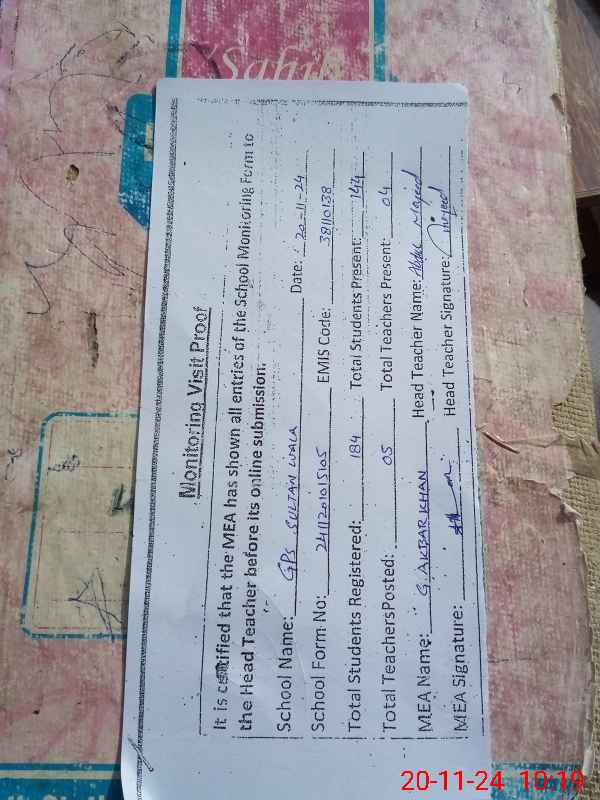 Sahib
Monitoring Visit Proof
It is certified that the MEA has shown all entries of the School Monitoring Form to
the Head Teacher before its online submission.
School Name: GPS SULTAN WALA Date: 20-11-24
School Form No: 2411201015105 EMIS Code: 38110138
Total Students Registered: 184 Total Students Present: 144
Total TeachersPosted: 05 Total Teachers Present: 04
MEA Name: G. AKBAR KHAN Head Teacher Name: Abdul Majeed
MEA Signature: Head Teacher Signature: Majeed
20-11-24 10:19